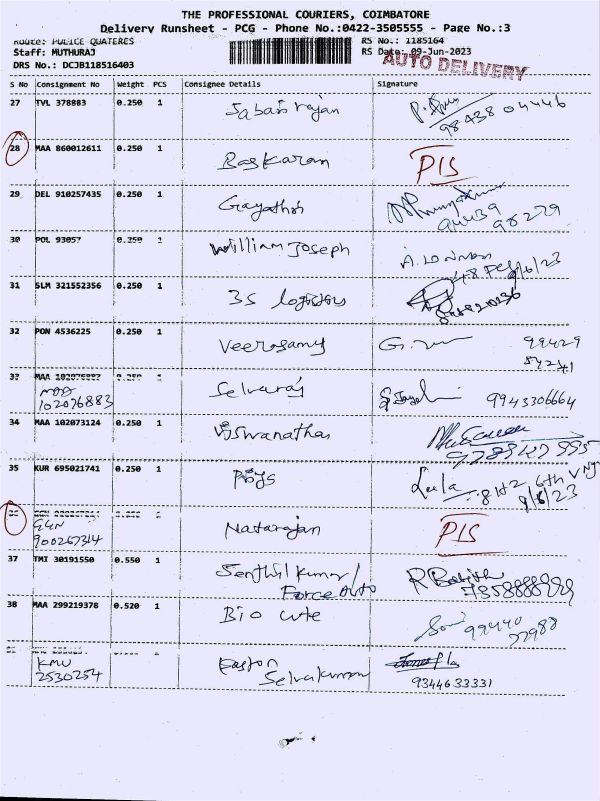 THE PROFESSIONAL COURIERS, COIMBATORE
Delivery Runsheet - PCG - Phone No.:0422-3505555 - Page No.:3
Route: POLICE QUATERES RS No.: 1185164
Staff: MUTHURAJ RS Date: 09-Jun-2023
AUTO DELIVERY
DRS No.: DCJB118516403
S No Consignment No Weight PCS Consignee Details Signature
27 TVL 378883 0.250 1 Sabasrajan
98438 04446
28 MAA 860012611 0.250 1 Baskaran PIS
29 DEL 910257435 0.250 1 Gayathri
94439 98279
30 POL 93057 0.250 1 William Joseph
31 SLM 321552356 0.250 1 3S logistics
32 PON 4536225 0.250 1 Veerasamy 99429
54241
33 Selvaraj 9943306664
MAA
102076883
34 MAA 102073124 0.250 1 Viswanathan
35 KUR 695021741 0.250 1 Leela
9/6/23
Natarajan PIS
900267314
37 TMI 30191550 0.550 1 Senthil Kumar/
Force Auto
38 MAA 299219378 0.520 1 Bio cute
99440
77988
KMU Easton
2530254 Selvakumar
9344633331